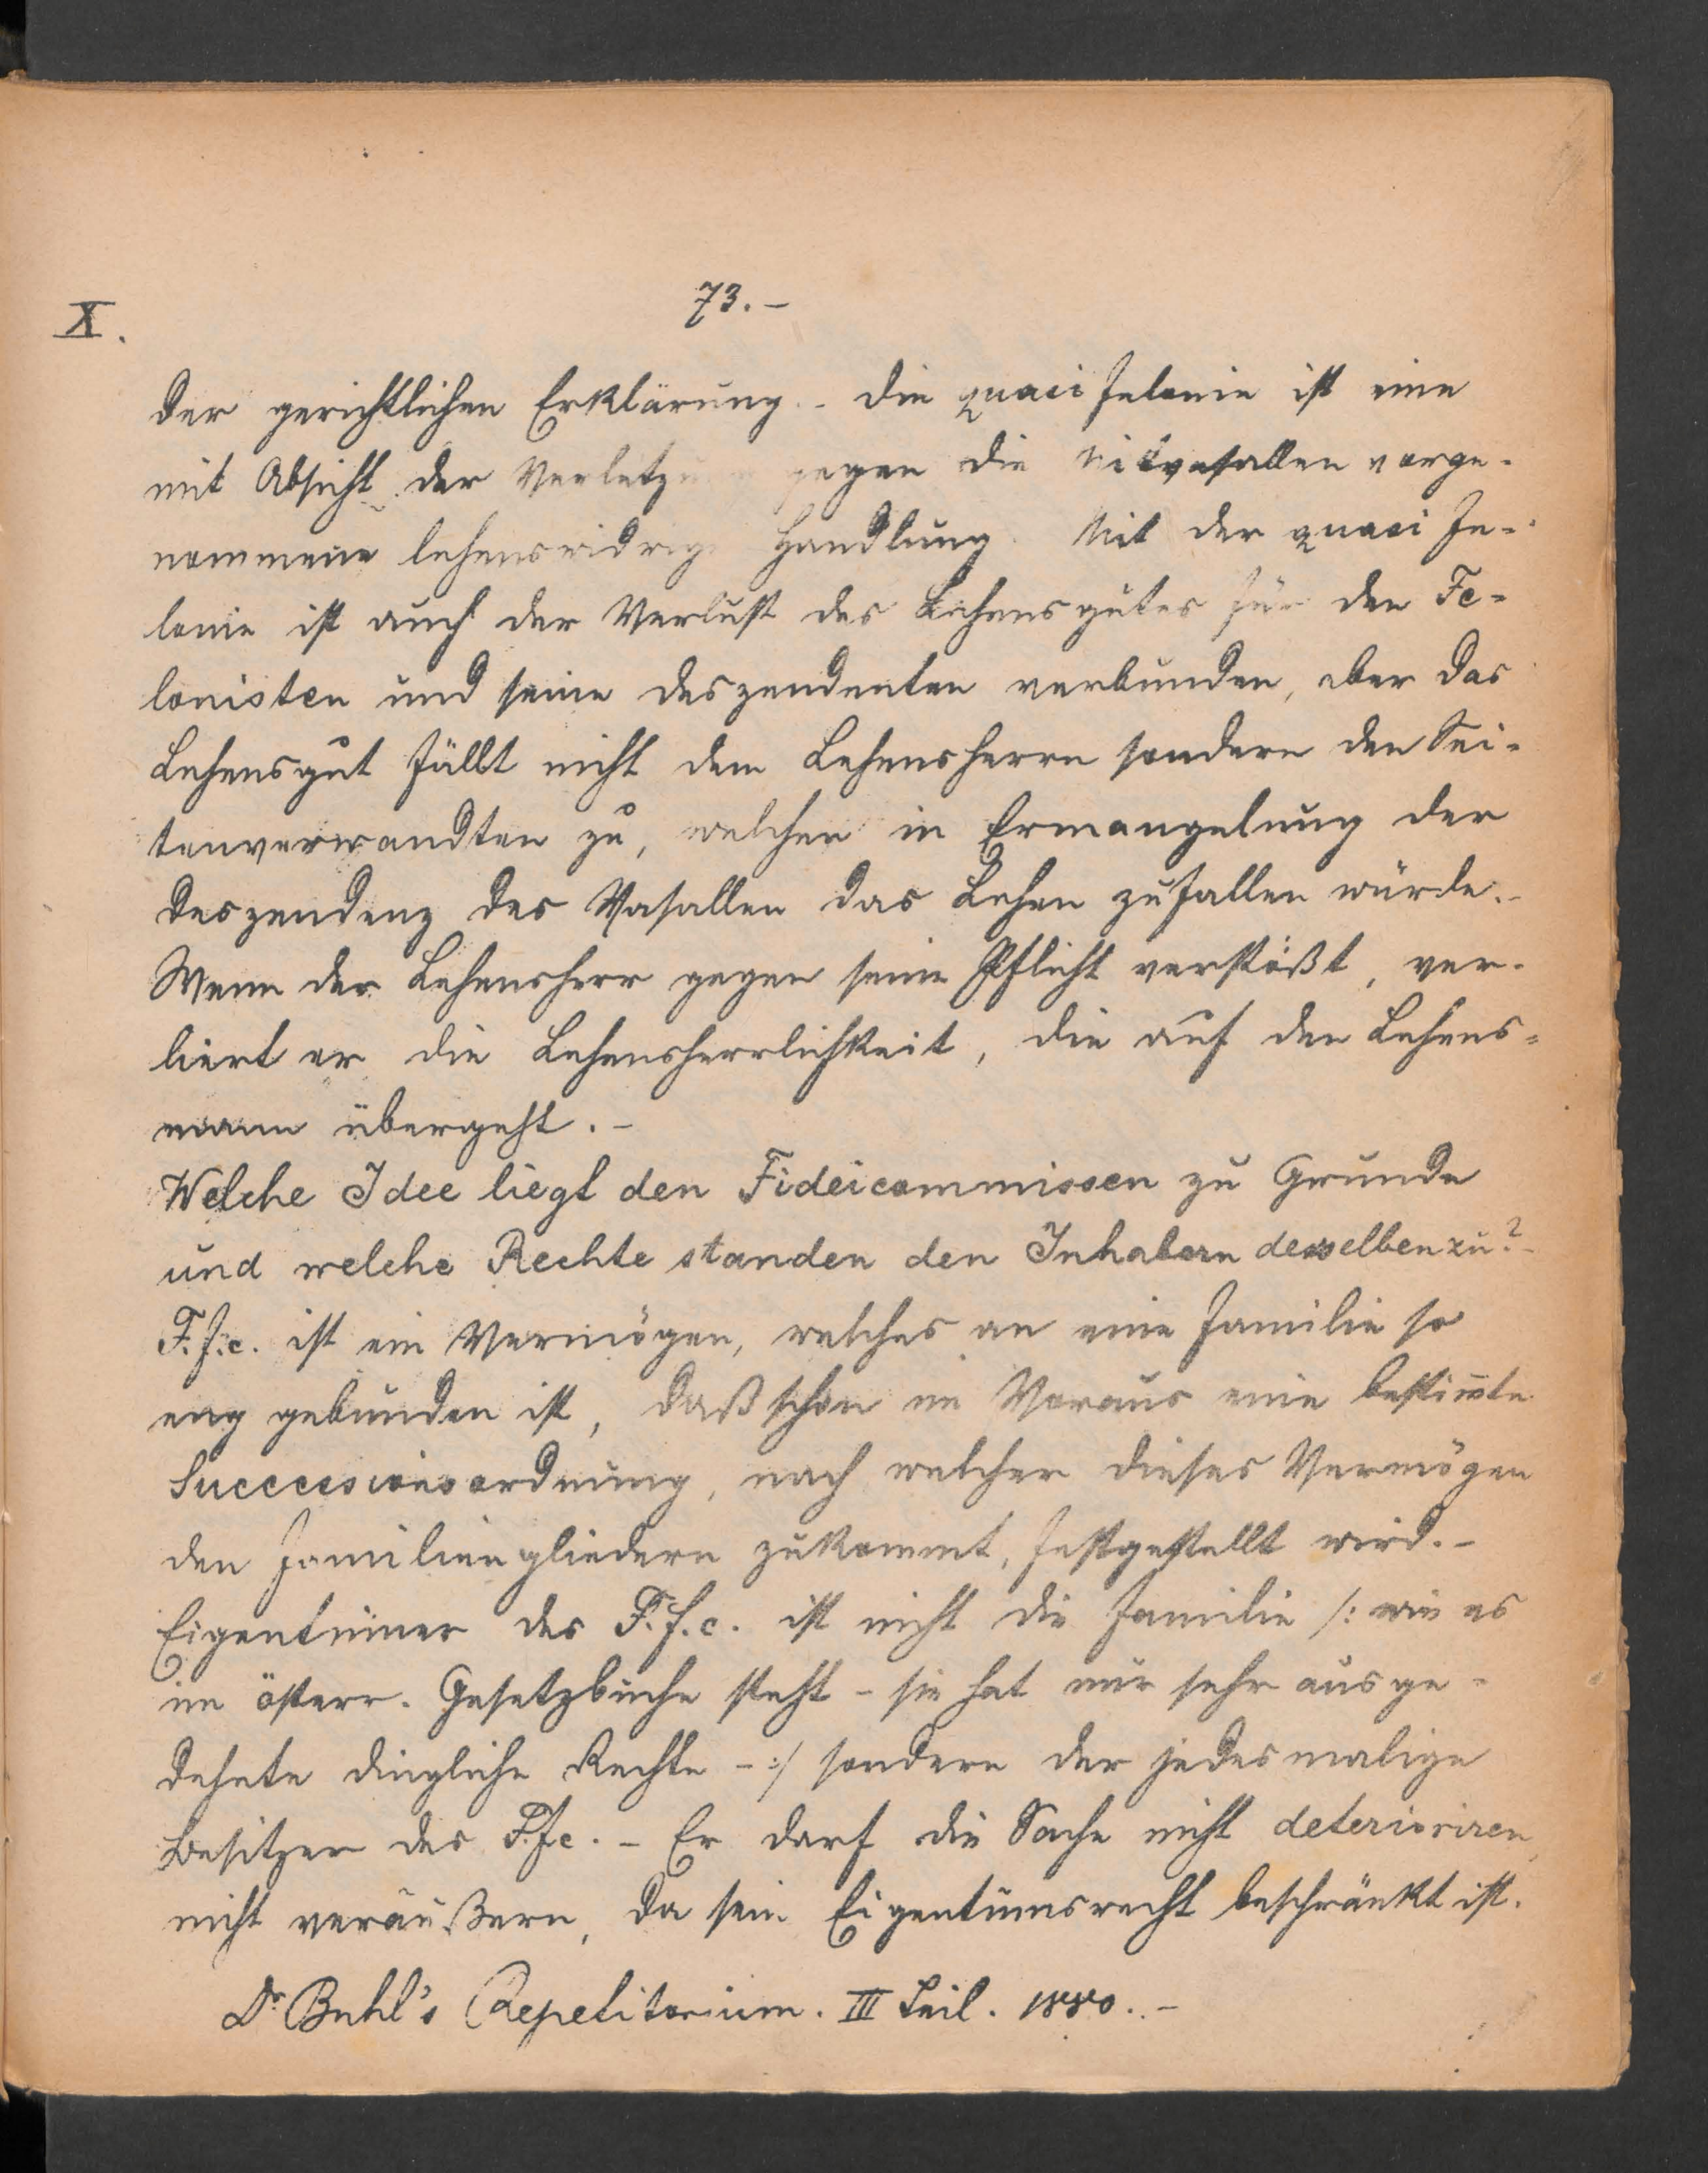 73.-
X.
der gerichtlichen Erklärung. - Die quasi Felonie ist eine
mit Absicht der Verletzung gegen die Mitvasallen vorge-
nommene lehenswidrige Handlung. Mit der quasi Fe-
lonie ist auch der Verlust des Lehensgutes für den Fe-
lonisten und seine Deszendenten verbunden, aber das
Lehensgut fällt nicht dem Lehensherrn sondern den Sei-
tenverwandten zu, welchen in Ermangelung der
Deszendenz des Vasallen das Lehen zufallen würde.-
Wenn der Lehensherr gegen seine Pflicht verstößt, ver-
liert er die Lehensherrlichkeit, die auf den Lehens-
mann übergeht.-
Welche Idee liegt den Fideicommissen zu Grunde
und welche Rechte standen den Inhabern desselben zu?-
F.f.c. ist ein Vermögen, welches an eine Familie so
eng gebunden ist, daß schon im Voraus eine bestim̄te
Successionsordnung, nach welcher dieses Vermögen
den Familiengliedern zukommt, festgestellt wird.-
Eigentümer des F.f.c. ist nicht die Familie /: wie es
im österr. Gesetzbuche steht - sie hat nur sehr ausge-
dehnte dingliche Rechte - :/ sondern der jedesmalige
Besitzer des F.f.c. - Er darf die Sache nicht deterioriren,
nicht veräußern, da sein Eigentumsrecht beschränkt ist.
Dr Buhl's Repetitorium. III Teil. 1880.-